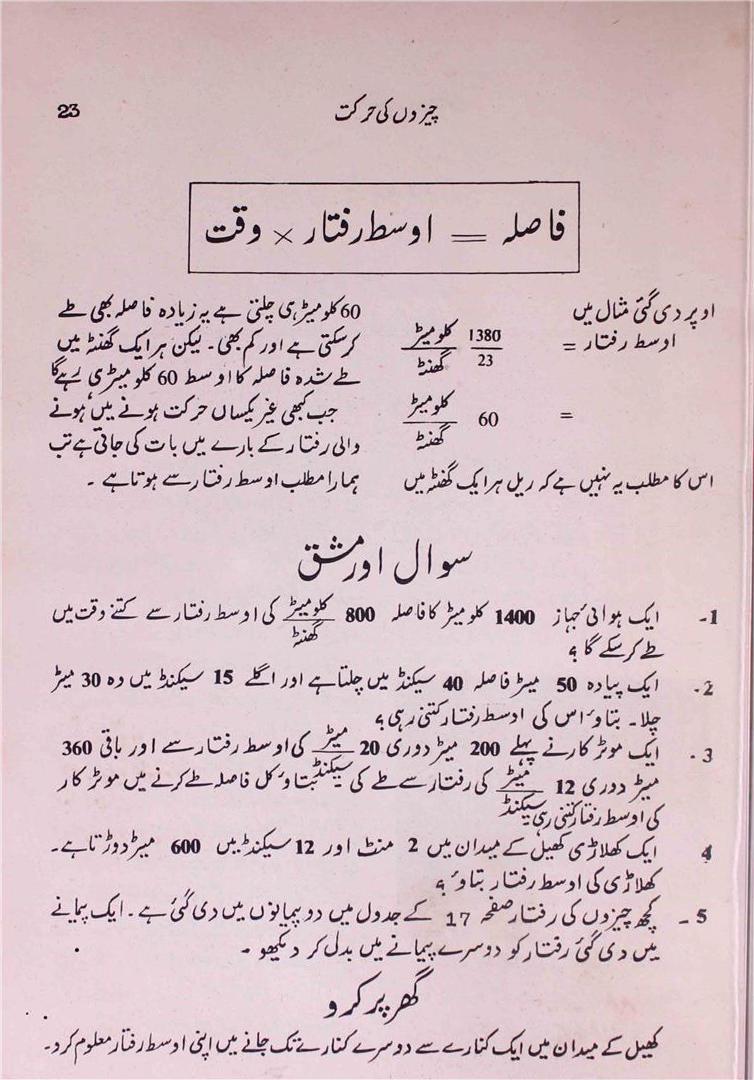 چیزوں کی حرکت
23
فاصلہ = اوسط رفتار × وقت
اوپر دی گئی مثال میں
اوسط رفتار = 1380/23 کلومیٹر/گھنٹہ
= 60 کلومیٹر/گھنٹہ
اس کا مطلب یہ نہیں ہے کہ ریل ہر ایک گھنٹہ میں
60 کلومیٹر ہی چلتی ہے یہ زیادہ فاصلہ بھی طے
کرسکتی ہے اور کم بھی۔ لیکن ہر ایک گھنٹہ میں
طے شدہ فاصلہ کا اوسط 60 کلومیٹر ہی رہے گا
جب کبھی غیر یکساں حرکت ہونے میں ہونے
والی رفتار کے بارے میں بات کی جاتی ہے تب
ہمارا مطلب اوسط رفتار سے ہوتا ہے ۔
سوال اور مشق
1- ایک ہوائی جہاز 1400 کلو میٹر کا فاصلہ 800 کلومیٹر/گھنٹہ کی اوسط رفتار سے کتنے وقت میں
طے کرسکے گا ؟
2- ایک پیادہ 50 میٹر فاصلہ 40 سیکنڈ میں چلتا ہے اور اگلے 15 سیکنڈ میں وہ 30 میٹر
چلا۔ بتاؤ اس کی اوسط رفتار کتنی رہی ؟
3- ایک موٹر کار نے پہلے 200 میٹر دوری 20 میٹر/سیکنڈ کی اوسط رفتار سے اور باقی 360
میٹر دوری 12 میٹر/سیکنڈ کی رفتار سے طے کی بتاؤ کل فاصلہ طے کرنے میں موٹر کار
کی اوسط رفتار کتنی رہی
4 ایک کھلاڑی کھیل کے میدان میں 2 منٹ اور 12 سیکنڈ میں 600 میٹر دوڑتا ہے۔
کھلاڑی کی اوسط رفتار بتاؤ ؟
5- کچھ چیزوں کی رفتار صفحہ 17 کے جدول میں دو پیمانوں میں دی گئی ہے۔ ایک پیمانے
میں دی گئی رفتار کو دوسرے پیمانے میں بدل کر دیکھو ۔
گھر پر کرو
کھیل کے میدان میں ایک کنارے سے دوسرے کنارے تک جانے میں اپنی اوسط رفتار معلوم کرو۔